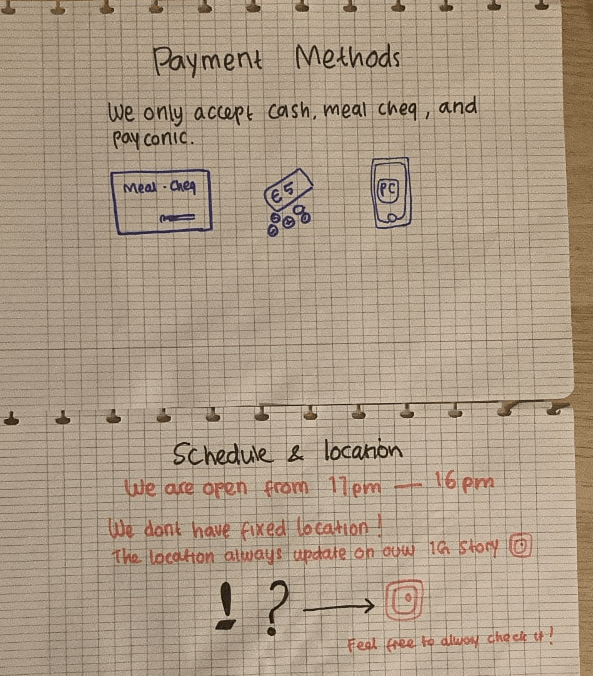 Payment Methods
We only accept cash, meal cheq, and
payconic.
Meal-Cheq
€5
PC
Schedule & location
We are open from 11pm — 16 pm
We dont have fixed location!
The location always update on ouw IG Story
! ?
Feel free to alway check it!